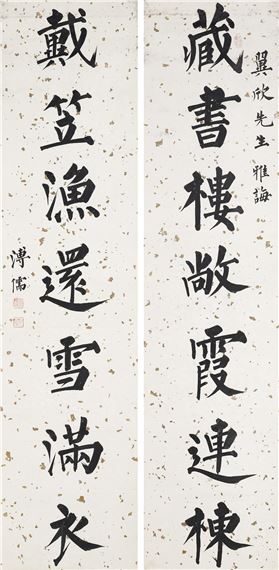 翼欣先生雅誨
藏書樓敞霞連棟
戴笠漁還雪滿衣
溥儒